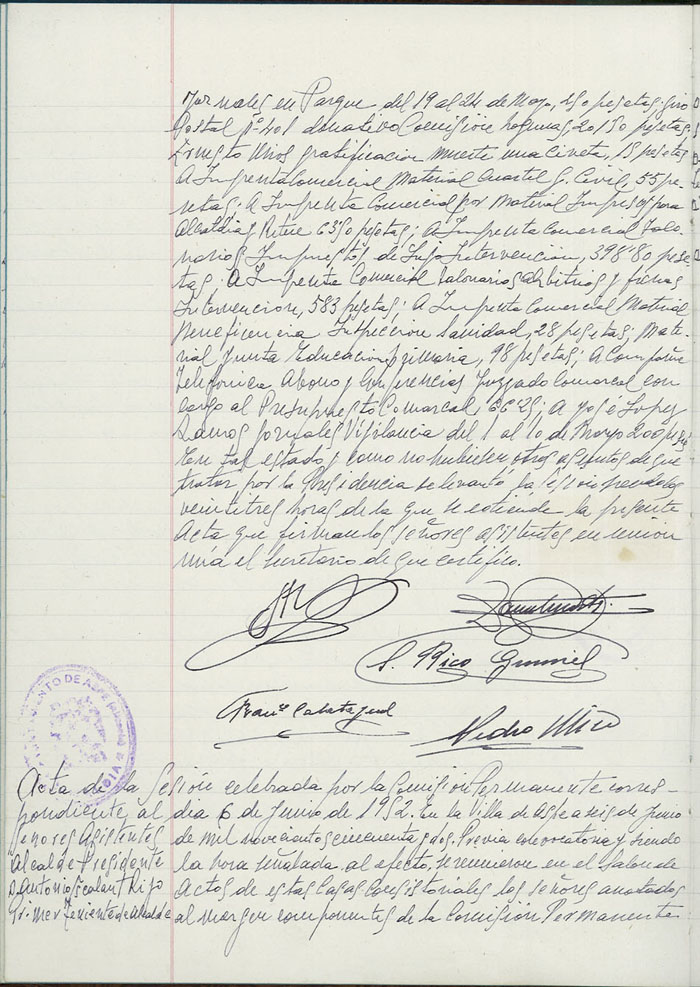 Jornales en Parque del 19 al 24 de Mayo, 150 pesetas; giro
Postal nº 401 donativo Comisión 20150 pesetas,
Ernesto Mira gratificacion muerte una Civeta, 15 pesetas
A Imprenta Comercial Material Cuartel G. Civil, 55 pe-
setas; A Imprenta Comercial por Material Impresos para
Alcaldia, 6350 pesetas; A Imprenta Comercial Talo-
narios Impuestos de Lujo Intervención, 398'80 pese
tas; A Imprenta Comercial Talonarios arbitrios y fichas
Intervencion, 583 pesetas; A Imprenta Comercial Material
Beneficencia Inspeccion Sanidad, 28 pesetas; Mate-
rial Junta Educacion primaria, 98 pesetas; A Compañia
Telefonica Abono y Conferencias Juzgado Comarcal con
cargo al Presupuesto Comarcal 66'25; A José Lopez
Ramos Jornales Vigilancia del 1 al 10 de Mayo 200
En tal estado y como no hubiesen otros asuntos de que
tratar por la Presidencia se levantó la sesion siendo las
veintitres horas de la que se extiende la presente
Acta que firman los señores asistentes en union
mia el Secretario de que certifico.
S. Rico
Franº Calatayud
Pedro Mira
AYUNTAMIENTO DE ASPE (Alicante)
Acta de la Sesión celebrada por la Comisión Permanente corres-
pondiente al dia 6 de Junio de 1952. En la Villa de Aspe a seis de Junio
Señores Asistentes de mil novecientos cincuenta y dos. Previa convocatoria y siendo
Alcalde Presidente la hora señalada al efecto, se reunieron en el Salon de
D. Antonio Actos de estas Casas Consistoriales los señores anotados
Primer Teniente de Alcalde al margen componentes de la Comisión Permanente